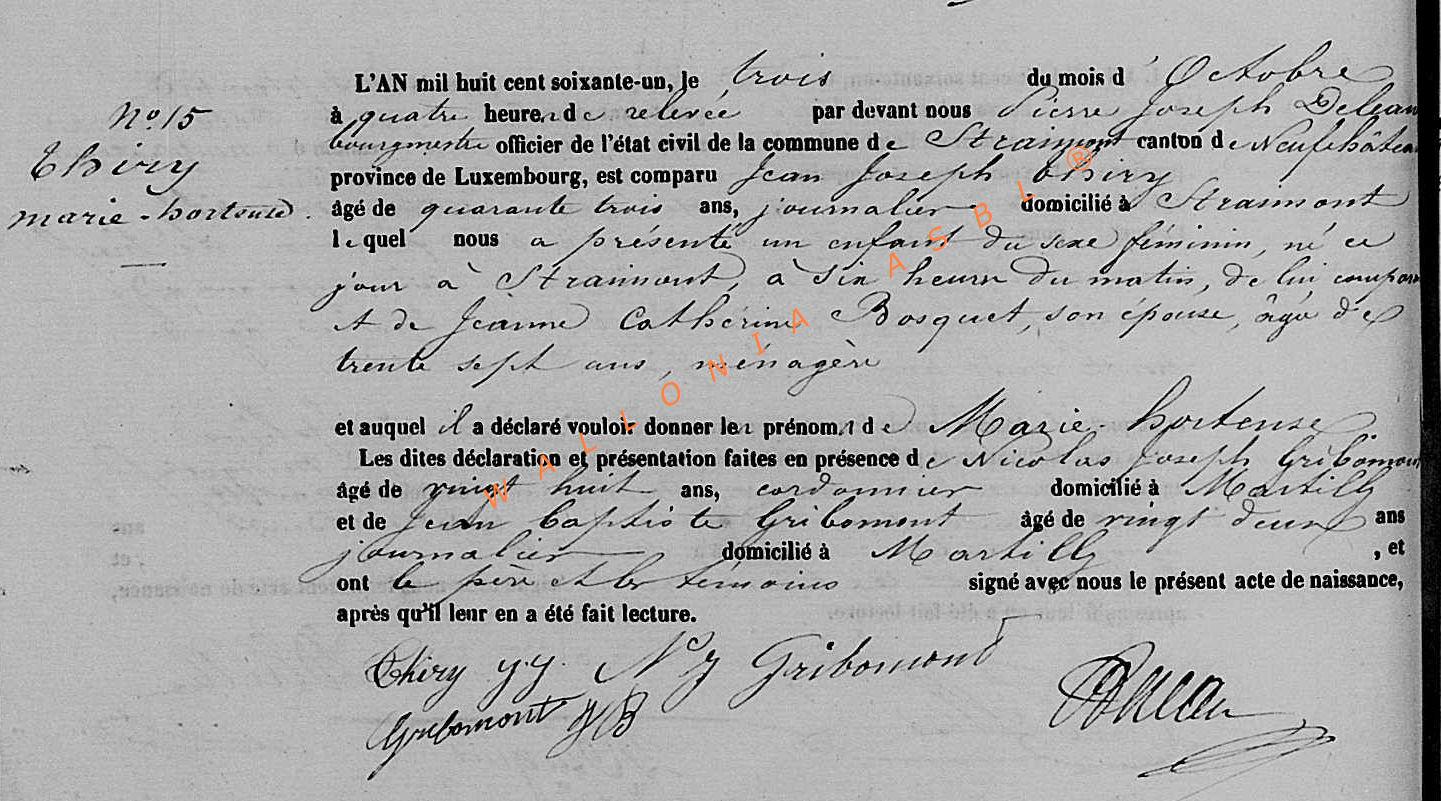 N° 15
Thiry
marie-hortense.
L'AN mil huit cent soixante-un, le trois du mois d' Octobre
à quatre heures de relevée par devant nous Pierre Joseph
bourgmestre officier de l'état civil de la commune de Straimont canton de Neufchâteau
province de Luxembourg, est comparu Jean Joseph Thiry
âgé de quarante trois ans, journalier domicilié à Straimont
lequel nous a présenté un enfant du sexe féminin, né ce
jour à Straimont, à six heures du matin, de lui, compar
et de Jeanne Catherine Bosquet, son épouse, âgée de
trente sept ans, ménagère
et auquel il a déclaré vouloir donner les prénoms de Marie-hortense
Les dites déclaration et présentation faites en présence de Nicolas Joseph Gribomont
âgé de vingt huit ans, cordonnier domicilié à Martilly
et de Jean Baptiste Gribomont âgé de vingt deux ans
journalier domicilié à Martilly , et
ont le père et les témoins signé avec nous le présent acte de naissance,
après qu'il leur en a été fait lecture.
Thiry J.J. N J Gribomont
Gribomont JB
WALLONIA ASBL ®